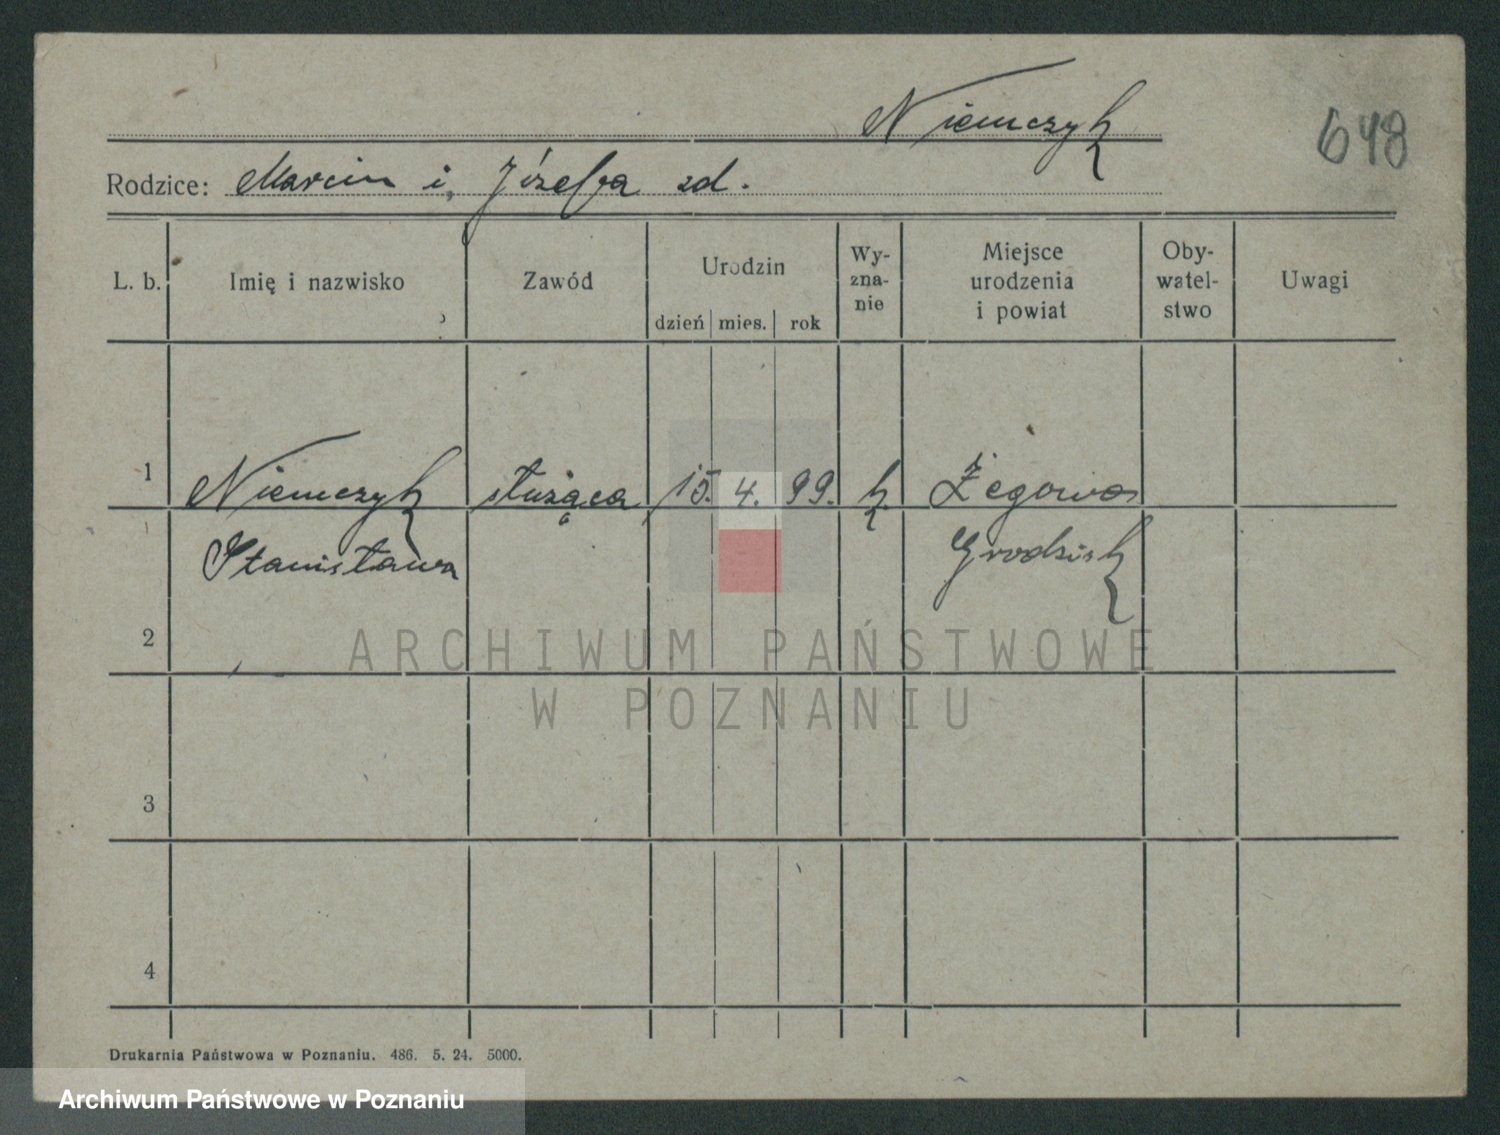 Niemczyk
648
Rodzice: Marcin i, Józefa zd.
L. b. Imię i nazwisko Zawód Urodzin Wy-zna-nie Miejsce urodzenia i powiat Oby-watel-stwo Uwagi
dzień mies. rok
1 Niemczyk służąca 15. 4. 99. k. Żegowo
Stanisława Grodzisk
2
ARCHIWUM PAŃSTWOWE
W POZNANIU
3
4
Drukarnia Państwowa w Poznaniu. 486. 5. 24. 5000.
Archiwum Państwowe w Poznaniu